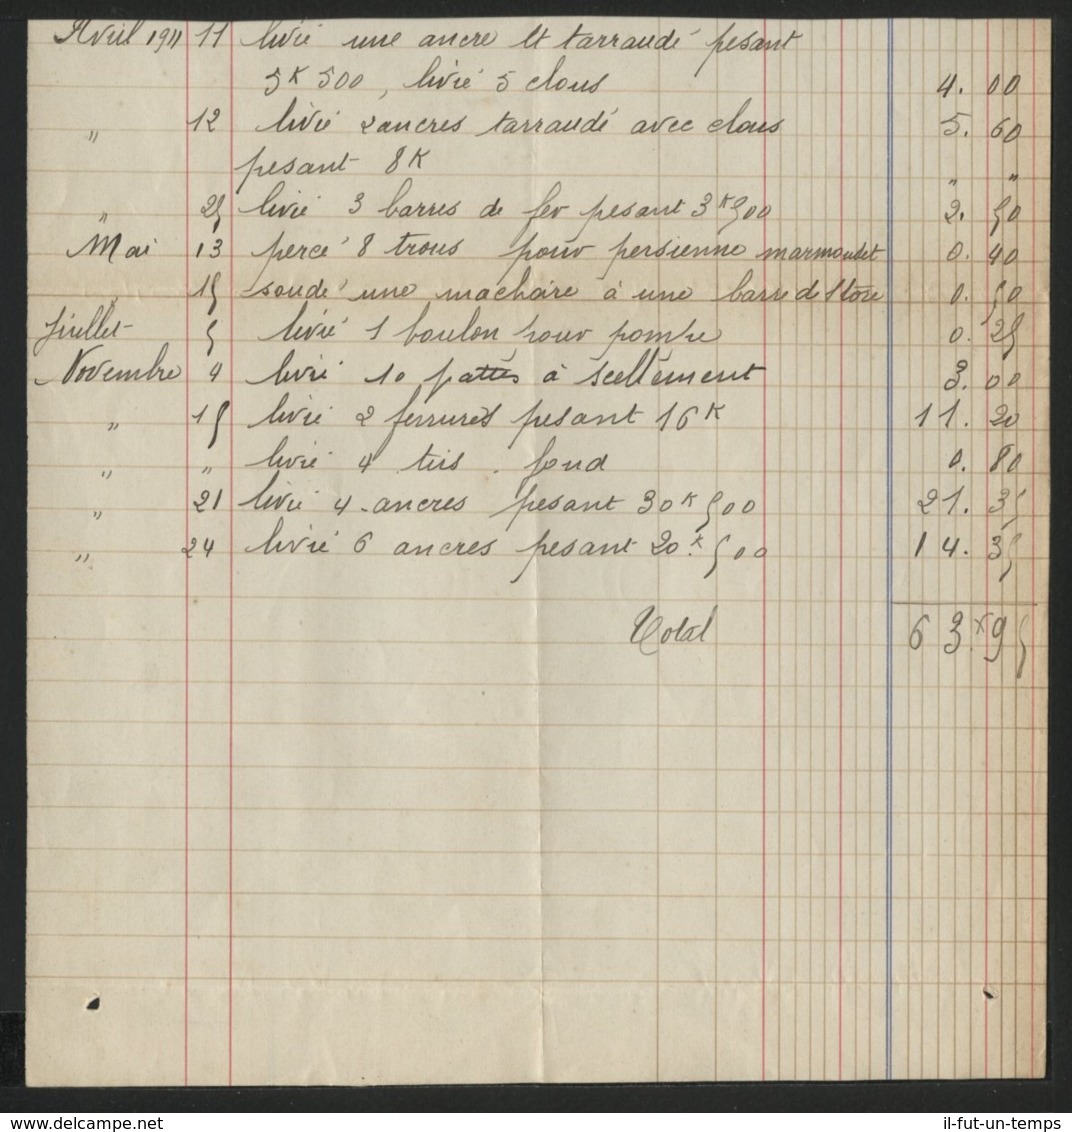 Avril 1911 11 livré une ancre et tarraudé pesant
5K 500, livré 5 clous 4. 00
" 12 livré 2 ancres tarraudé avec clous 5. 60
pesant 8K " "
" 25 livré 3 barres de fer pesant 3K500 2. 50
Mai 13 percé 8 trous pour persienne 0. 40
15 soudé une machoire à une barre de store 0. 50
Juillet 5 livré 1 boulon pour pompe 0. 25
Novembre 4 livré 10 pattes à scellement 3. 00
" 15 livré 2 ferrures pesant 16K 11. 20
" " livré 4 fond 0. 80
" 21 livré 4 ancres pesant 30K500 21. 35
" 24 livré 6 ancres pesant 20.K500 14. 35
Total 63.95
delcampe.net
il-fut-un-temps